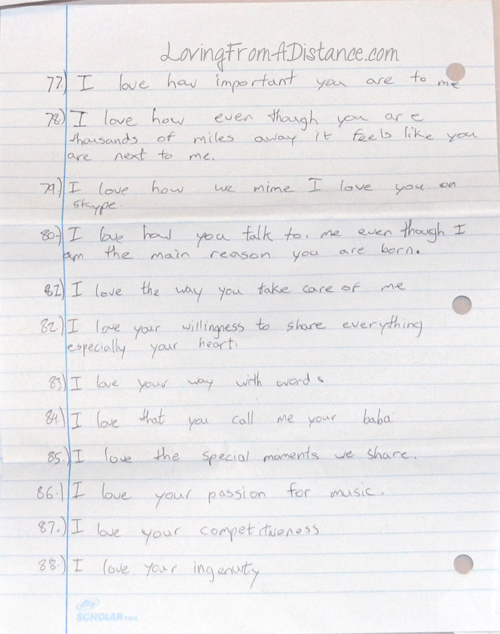 LovingFromADistance.com
77.) I love how important you are to me
78.) I love how even though you are
thousands of miles away it feels like you
are next to me.
79.) I love how we mime I love you on
skype.
80.) I love how you talk to me even though I
am the main reason you are born.
81.) I love the way you take care of me
82.) I love your willingness to share everything
especially your heart.
83.) I love your way with words
84.) I love that you call me your baba
85.) I love the special moments we share.
86.) I love your passion for music.
87.) I love your competitveness
88.) I love your ingenuity
SCHOLAR